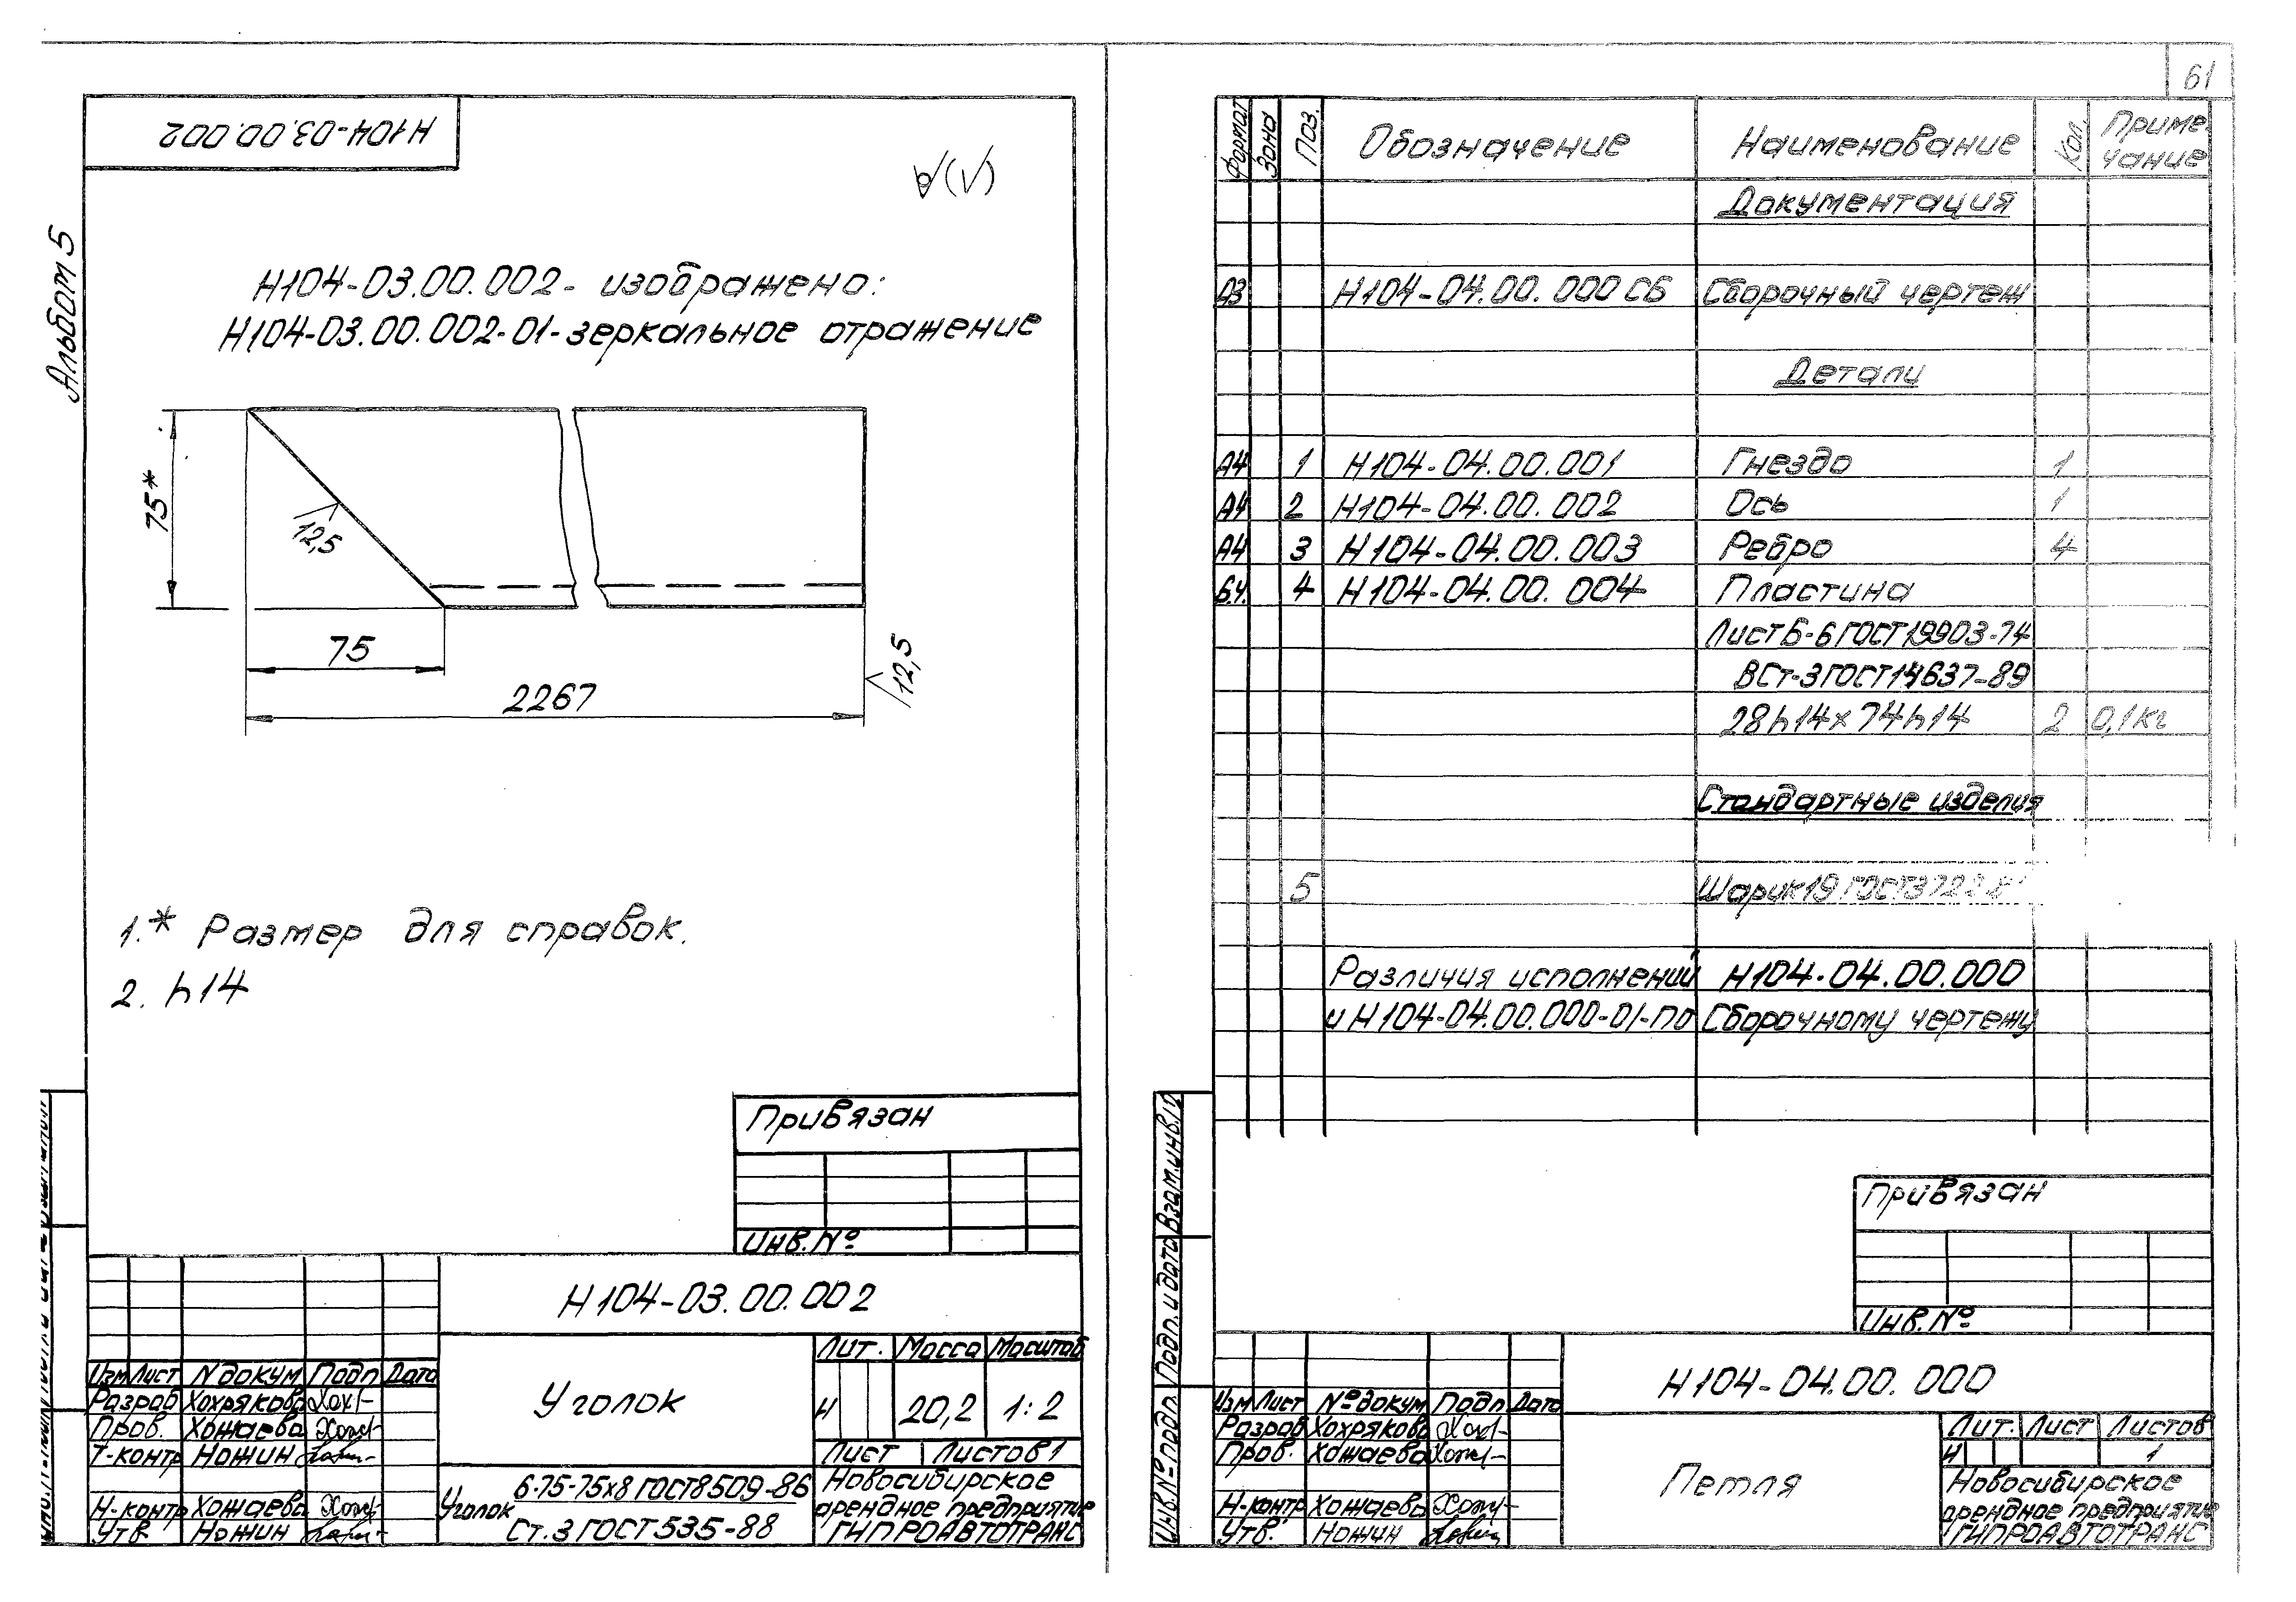 61
Н104-03.00.002
Альбом 5
Н104-03.00.002- изображено:
Н104-03.00.002-01-зеркальное отражение
75*
12,5
75
2267
12,5
1.* Размер для справок.
2. h14
Привязан
Инв.№
Н104-03.00.002
Лит. Масса Масштаб
Изм Лист № докум Подп Дата
Уголок
И 20,2 1:2
Разраб Хохрякова
Пров. Хожаева
Т-контр Ножин
Лист Листов 1
Н-контр Хожаева
Утв. Ножин
Уголок Б-75-75х8 ГОСТ 8509-86
Ст.3 ГОСТ 535-88
Новосибирское
арендное предприятие
ГИПРОАВТОТРАНС
Формат Зона Поз. Обозначение Наименование Кол. Примечание
Документация
А3 Н104-04.00.000 СБ Сборочный чертеж
Детали
А4 1 Н104-04.00.001 Гнездо 1
А4 2 Н104-04.00.002 Ось 1
А4 3 Н104-04.00.003 Ребро 4
Б.Ч. 4 Н104-04.00.004 Пластина
Лист Б-6 ГОСТ 19903-74
ВСт-3 ГОСТ 14637-89
28h14х74h14 2 0,1кг
Стандартные изделия
5 Шарик 19 ГОСТ 3722-
Различия исполнений Н104-04.00.000
и Н104-04.00.000-01-по Сборочному чертежу
Привязан
Инв.№
Взам.инв.№
Подп. и дата
Инв.№ подл.
Н104-04.00.000
Изм Лист № докум Подп Дата
Разраб Хохрякова
Пров. Хожаева
Н-контр Хожаева
Утв. Ножин
Петля
Лит. Лист Листов
И 1
Новосибирское
арендное предприятие
ГИПРОАВТОТРАНС